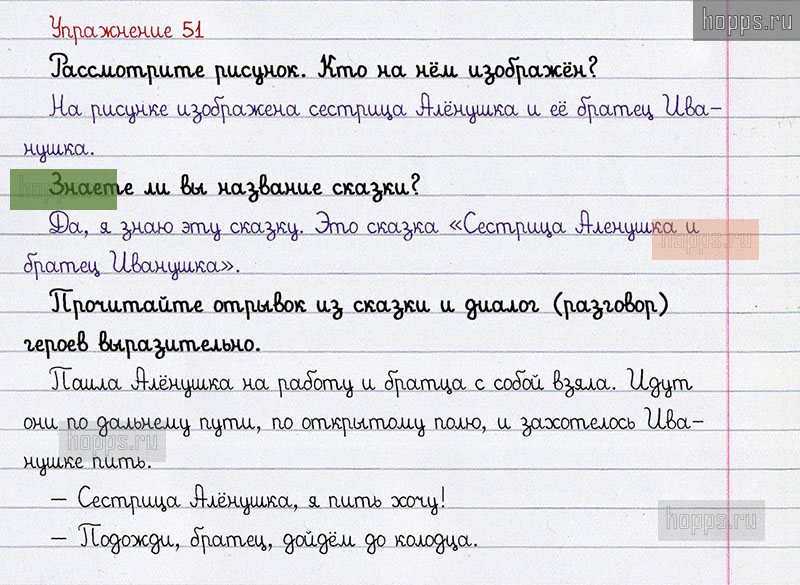 hopps.ru
Упражнение 51
Рассмотрите рисунок. Кто на нём изображён?
На рисунке изображена сестрица Алёнушка и её братец Ива-
нушка.
Знаете ли вы название сказки?
Да, я знаю эту сказку. Это сказка «Сестрица Аленушка и
hopps.ru
братец Иванушка».
Прочитайте отрывок из сказки и диалог (разговор)
героев выразительно.
Пошла Алёнушка на работу и братца с собой взяла. Идут
они по дальнему пути, по открытому полю, и захотелось Ива-
hopps.ru
нушке пить.
– Сестрица Алёнушка, я пить хочу!
hopps.ru
– Подожди, братец, дойдём до колодца.